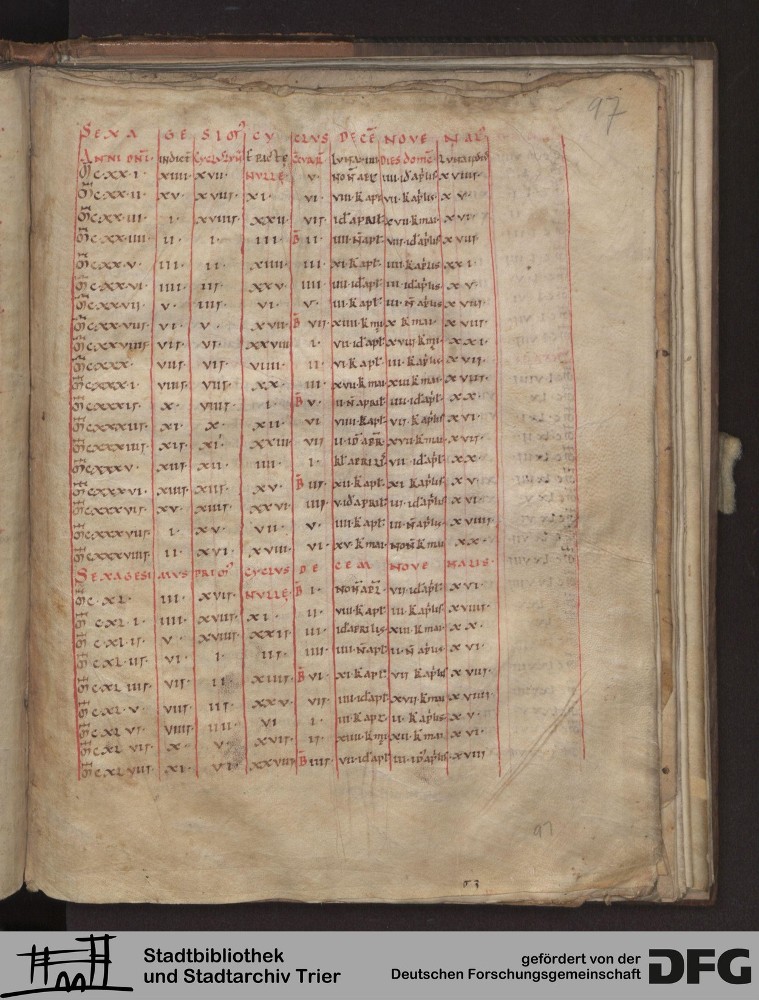 97
SEXA GE SIOR CY CLVS DECE NOVE NAL
ANNI DNI· INDICT CYCLVS LVN EPACTE LVNA XIIII DIES DOMINI LVNA IPSIVS
M̄C·XX·I· XIIII· XVII· NVLLE· V· NON APL IIII·IdApLis XVIIII·
M̄C·XX·II· XV· XVIII· XI· VI· VIII·KApL VII·KApLis XV·
M̄C·XX·III· I· XVIIII· XXII· VII· IdAPRIL XVII·Kmai· XVI·
M̄C·XX·IIII· II· I· III· B II· IIII·NApL· VIII·IdApLis XVII·
M̄C·XX·V· III· II· XIIII· III· XI·KApL· IIII·KApLis XXI·
M̄C·XX·VI· IIII· III· XXV· IIII· IIII·IdApL· III·IdApLis XV·
M̄C·XXVII· V· IIII· VI· V· III·KApL· III·NApLis XVIII·
M̄C·XXVIII· VI· V· XVII· B VII· XIIII·Kmai X·Kmai· XVIII·
M̄C·XXVIIII· VII· VI· XXVIII· I· VII·IdApL· XVIII·Kmai· XXI·
M̄C·XXX· VIII· VII· VIIII· II· VI·KApL· III·KApLis XVII·
M̄C·XXX·I· VIIII· VIII· XX· III· XVII·Kmai XIII·Kmai XVIII·
M̄C·XXXII· X· VIIII· I· B V· II·NApRIL IIII·IdApL· XX·
M̄C·XXXIII· XI· X· XII· VI· VIII·KApL· VII·KApLis XVI·
M̄C·XXXIIII· XII· XI· XXIII· VII· II·IdAPR· XVII·Kmai· XVII·
M̄C·XXXV· XIII· XII· IIII· I· KL APRILIS VII·IdApL· XX·
M̄C·XXXVI· XIIII· XIII· XV· B III· XII·KApL· XI·KApLis XV·
M̄C·XXXVII· XV· XIIII· XXVI· IIII· V·IdAPRIL III·IdApLis XVI·
M̄C·XXXVIII· I· XV· VII· V· IIII·KApL· III·NApLis XVIIII·
M̄C·XXXVIIII· II· XVI· XVIII· VI· XV·Kmai· NON Kmai· XX·
SEXAGESI MVS PRIM CYCLVS DE CEM NOVE NALIS·
M̄C·XL· III· XVII· NVLLE B I· NON APL VII·IdApL· XVI·
M̄C·XL·I· IIII· XVIII· XI· II· VIII·KApL· III·KApLis XVIIII·
M̄C·XL·II· V· XVIIII· XXII· III· IdAPRILIS XII·Kmai· XX·
M̄C·XL·III· VI· I· III· IIII· IIII·NApL· II·NApLis XVI·
M̄C·XL·IIII· VII· II· XIIII· B VI· XI·KApL· VII·KApLis XVIII·
M̄C·XL·V· VIII· III· XXV· VII· IIII·IdApL XVII·Kmai XVIIII·
M̄C·XL·VI· VIIII· IIII· VI· I· III·KApL· II·KApLis XV·
M̄C·XL·VII· X· V· XVII· II· XIIII·Kmai XII·Kmai· XVI·
M̄C·XL·VIII· XI· VI· XXVIII B IIII· VII·IdApL· III·IdApLis XVIII·
97
Stadtbibliothek
und Stadtarchiv Trier
gefördert von der
Deutschen Forschungsgemeinschaft
DFG